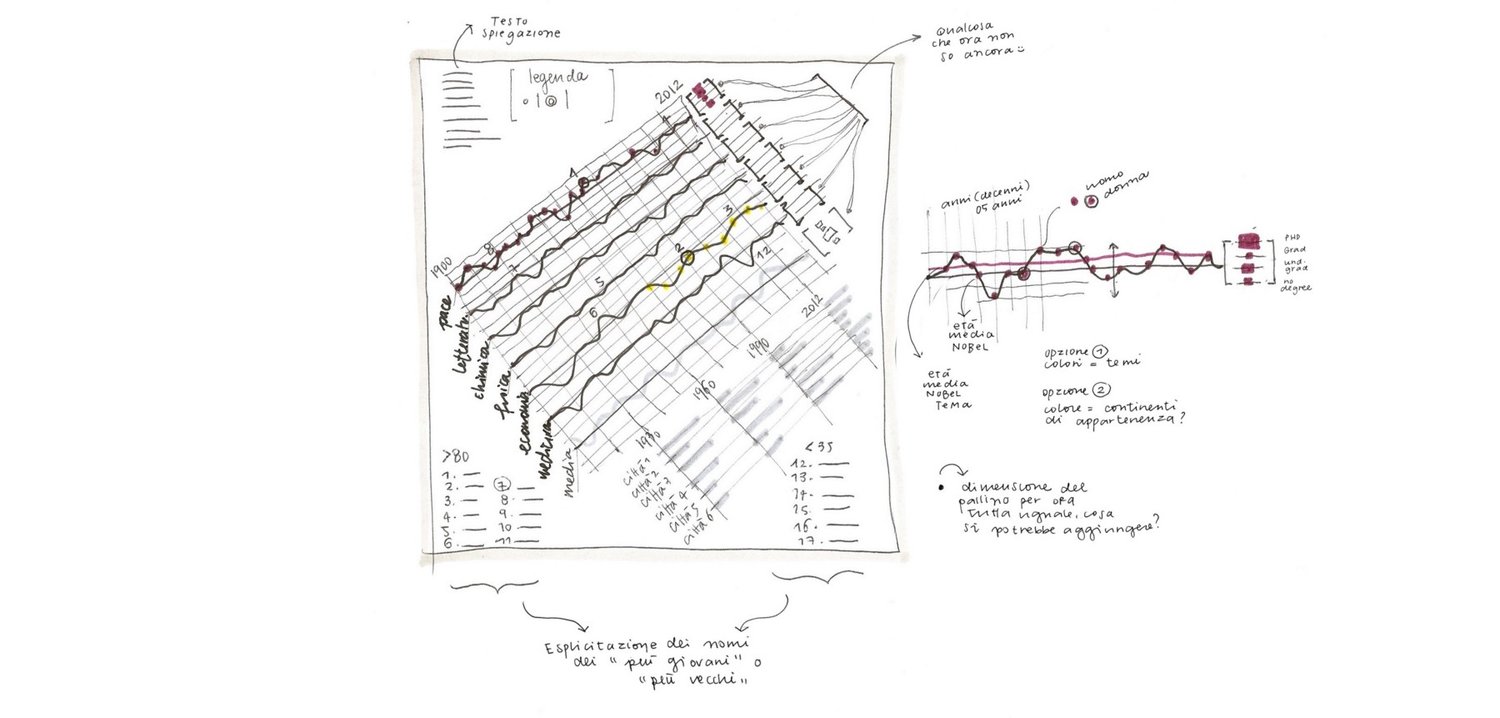 Testo
spiegazione
Qualcosa
che ora non
so ancora
legenda
2012
1900
4
8
7
5
6
2
3
12
pace
letteratu.
chimica
fisica
economia
medicina
media
2012
1990
1960
1930
città 1
città 2
città 3
città 4
città 5
città 6
>80
1.
2.
3.
4.
5.
6.
7
8.
9.
10
11
<35
12.
13.
14.
15.
16.
17.
Esplicitazione dei nomi
dei "più giovani" o
"più vecchi"
anni (decenni)
o 5 anni
uomo
donna
PHD
Grad
und-
grad
no
degree
età
media
NOBEL
età
media
NOBEL
TEMA
opzione 1
colori = temi
opzione 2
colore = continenti
di appartenenza?
dimensione del
pallino per ora
tutta uguale, cosa
si potrebbe aggiungere?